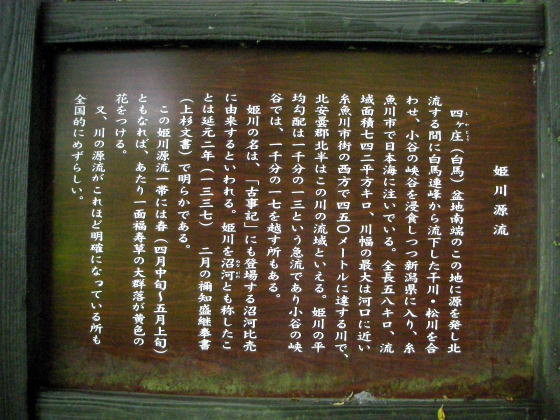 姫川源流
四ヶ庄（白馬）盆地南端のこの地に源を発し北
流する間に白馬連峰から流下した平川・松川を合
わせ、小谷の峡谷を浸食しつつ新潟県に入り、糸
魚川市で日本海に注いでいる。全長五八キロ、流
域面積七四二平方キロ、川幅の最大は河口に近い
糸魚川市街の西方で四五〇メートルに達する川で、
北安曇郡北半はこの川の流域といえる。姫川の平
均勾配は一千分の一三という急流であり小谷の峡
谷では、一千分の一七を越す所もある。
姫川の名は、「古事記」にも登場する沼河比売
に由来するといわれる。姫川を沼河とも称したこ
とは延元二年（一三三七）二月の禰知盛継奉書
（上杉文書）で明らかである。
この姫川源流一帯には春（四月中旬～五月上旬）
ともなれば、あたり一面福寿草の大群落が黄色の
花をつける。
又、川の源流がこれほど明確になっている所も
全国的にめずらしい。